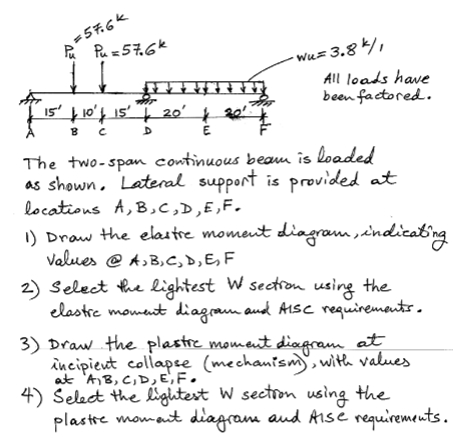 Pu = 57.6k
Pu = 57.6k
wu = 3.8 k/'
All loads have
been factored.
15' 10' 15' 20' 20'
A B C D E F
The two-span continuous beam is loaded
as shown. Lateral support is provided at
locations A, B, C, D, E, F.
1) Draw the elastic moment diagram, indicating
values @ A, B, C, D, E, F
2) Select the lightest W section using the
elastic moment diagram and AISC requirements.
3) Draw the plastic moment diagram at
incipient collapse (mechanism), with values
at A, B, C, D, E, F.
4) Select the lightest W section using the
plastic moment diagram and AISC requirements.